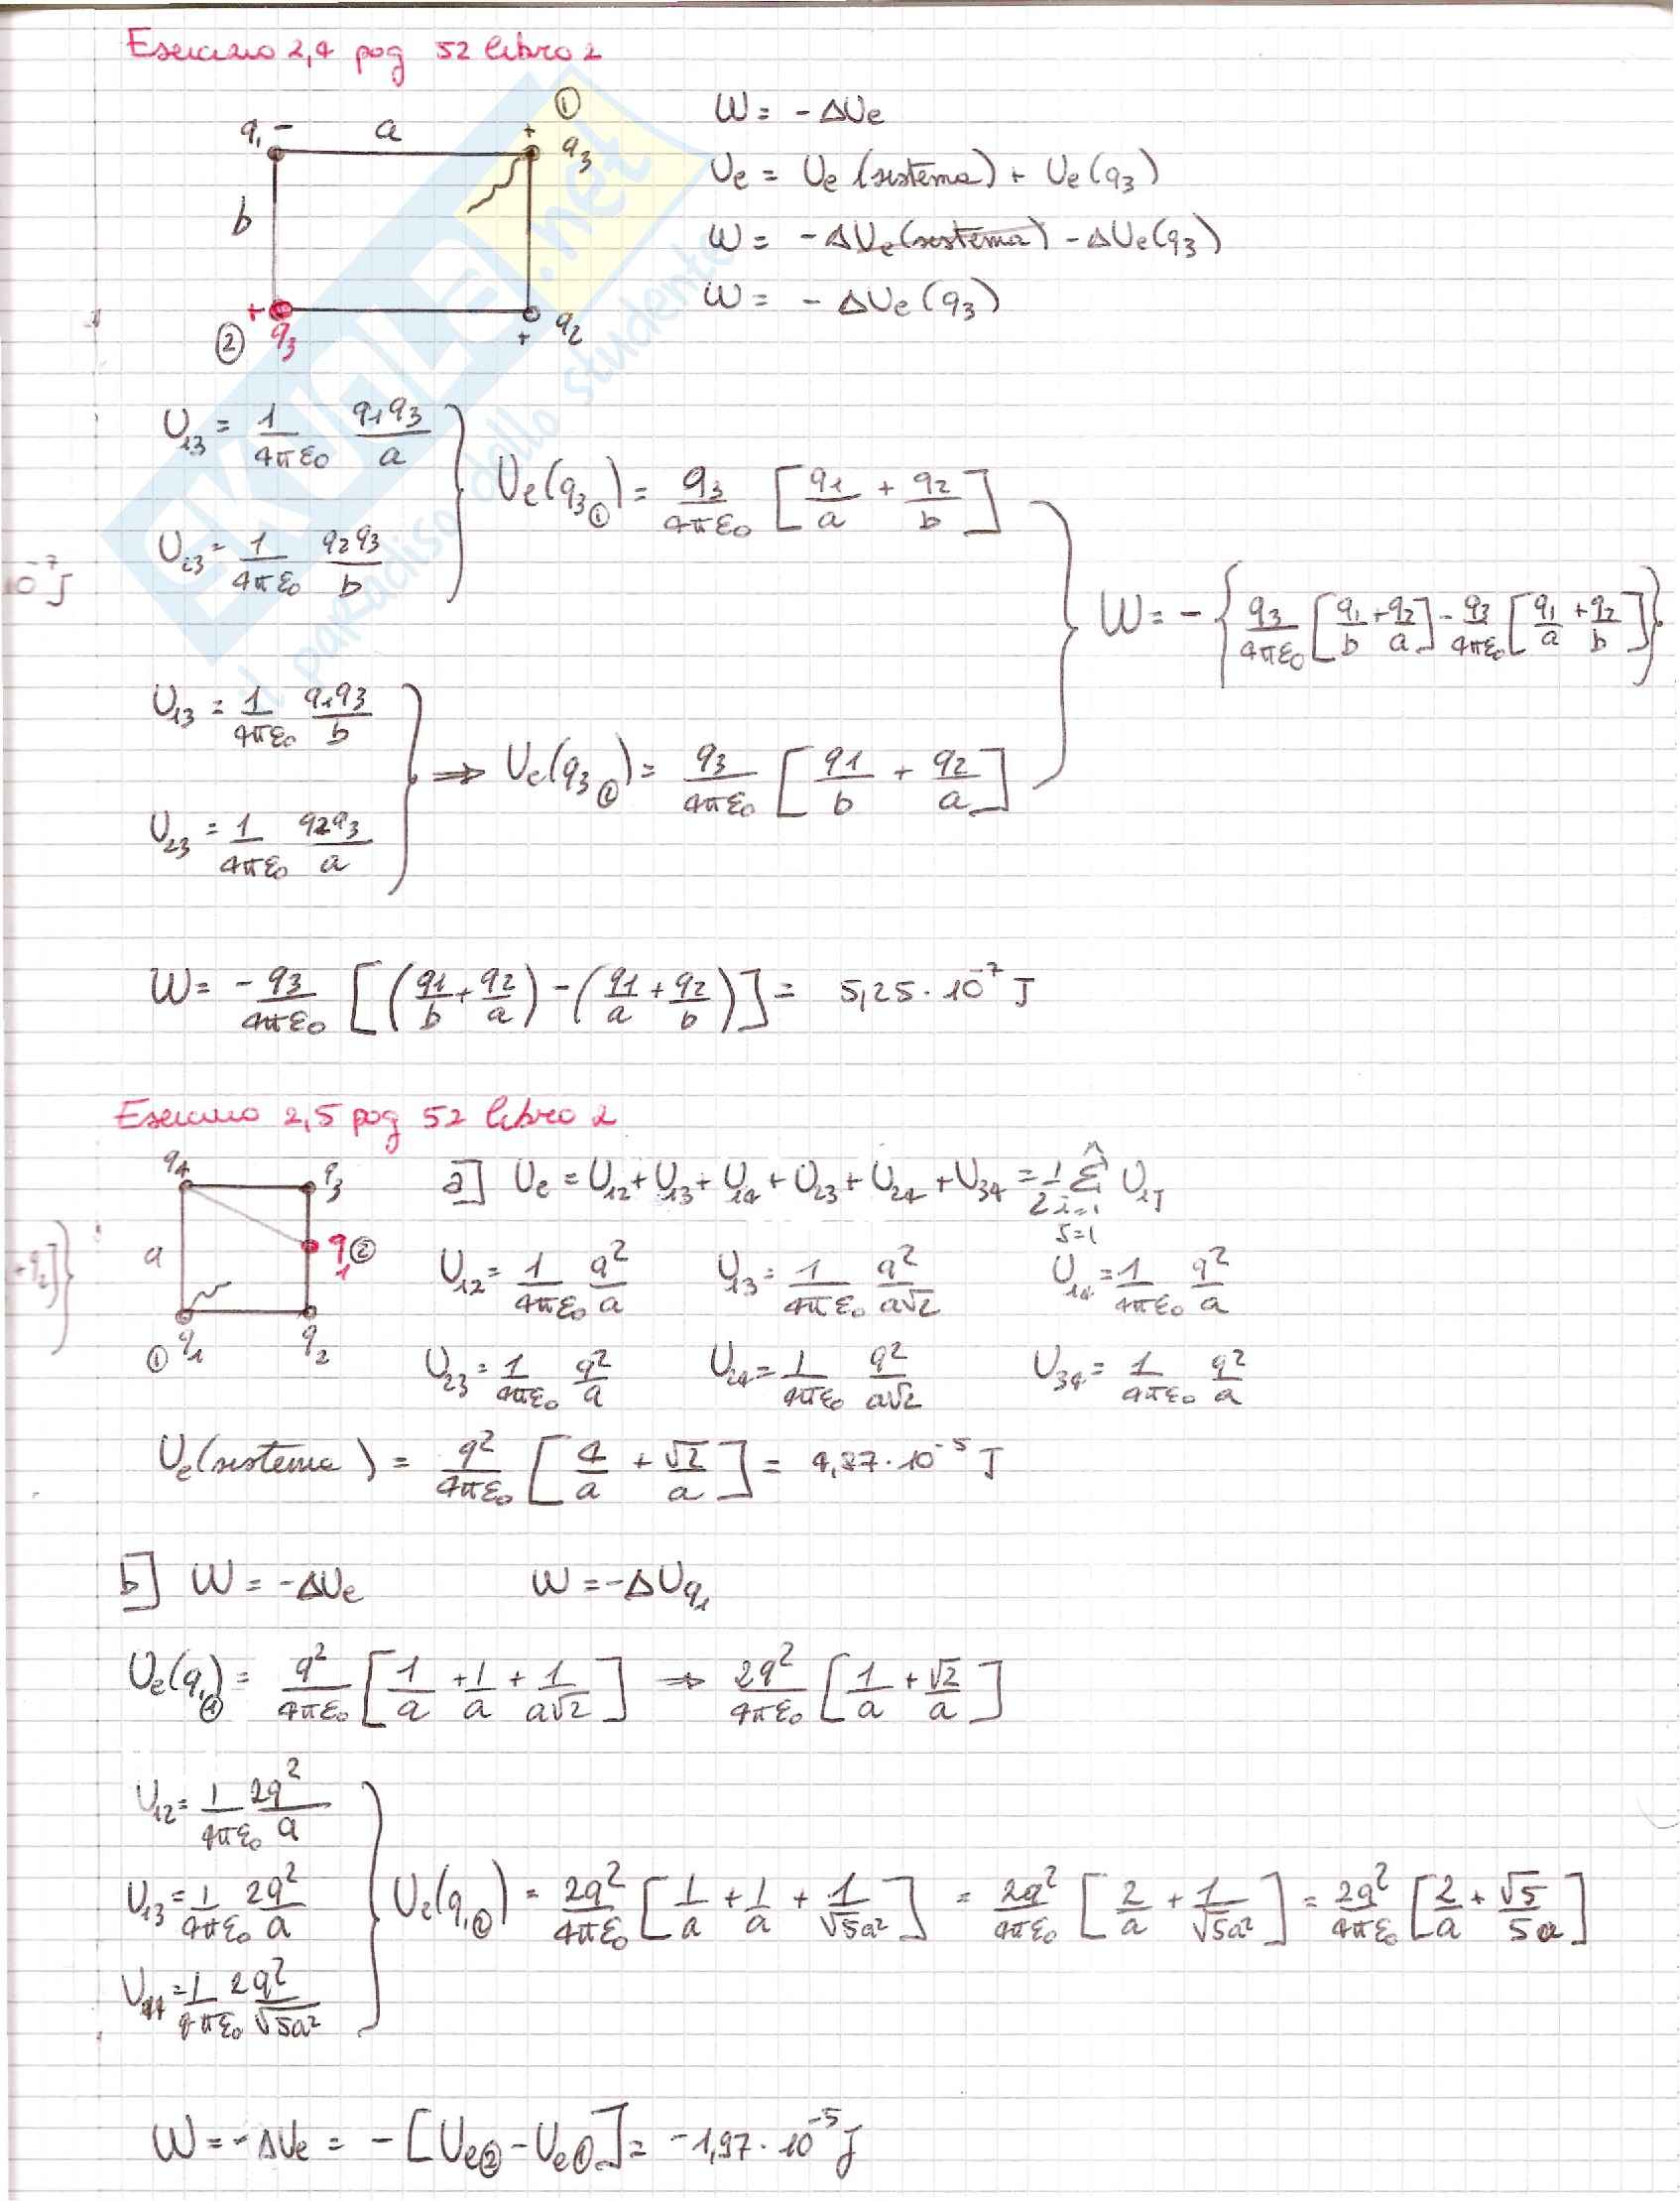 Esercizio 2,4 pag 52 libro 2
q₁ - a + ① q₃
b
+ q₃ ② + q₂
W = - ΔUe
Ue = Ue (sistema) + Ue (q₃)
W = - ΔUe (sistema) - ΔUe (q₃)
W = - ΔUe (q₃)
U₁₃ = 1/4πε₀ q₁q₃/a
U₂₃ = 1/4πε₀ q₂q₃/b
Ue(q₃①) = q₃/4πε₀ [q₁/a + q₂/b]
10⁻⁷ J
W = - {q₃/4πε₀ [q₁/b + q₂/a] - q₃/4πε₀ [q₁/a + q₂/b]}
U₁₃ = 1/4πε₀ q₁q₃/b
U₂₃ = 1/4πε₀ q₂q₃/a
⇒ Ue(q₃②) = q₃/4πε₀ [q₁/b + q₂/a]
W = - q₃/4πε₀ [(q₁/b + q₂/a) - (q₁/a + q₂/b)] = 5,25 · 10⁻⁷ J
Esercizio 2,5 pag 52 libro 2
q₄ q₃
a q₁ ②
① q₁ q₂
+q₂]}
a] Ue = U₁₂ + U₁₃ + U₁₄ + U₂₃ + U₂₄ + U₃₄ = 1/2 Σ i=1 j=1 Uij
U₁₂ = 1/4πε₀ q²/a U₁₃ = 1/4πε₀ q²/a√2 U₁₄ = 1/4πε₀ q²/a
U₂₃ = 1/4πε₀ q²/a U₂₄ = 1/4πε₀ q²/a√2 U₃₄ = 1/4πε₀ q²/a
Ue (sistema) = q²/4πε₀ [4/a + √2/a] = 4,87 · 10⁻⁵ J
b] W = - ΔUe W = - ΔUq₁
Ue(q₁①) = q²/4πε₀ [1/a + 1/a + 1/a√2] ⇒ 2q²/4πε₀ [1/a + √2/a]
U₁₂ = 1/4πε₀ 2q²/a
U₁₃ = 1/4πε₀ 2q²/a
U₁₄ = 1/4πε₀ 2q²/√5a²
Ue(q₁②) = 2q²/4πε₀ [1/a + 1/a + 1/√5a²] = 2q²/4πε₀ [2/a + 1/√5a²] = 2q²/4πε₀ [2/a + √5/5a]
W = - ΔUe = - [Ue② - Ue①] = -1,97 · 10⁻⁵ J
SKUOLA.net
il paradiso dello studente